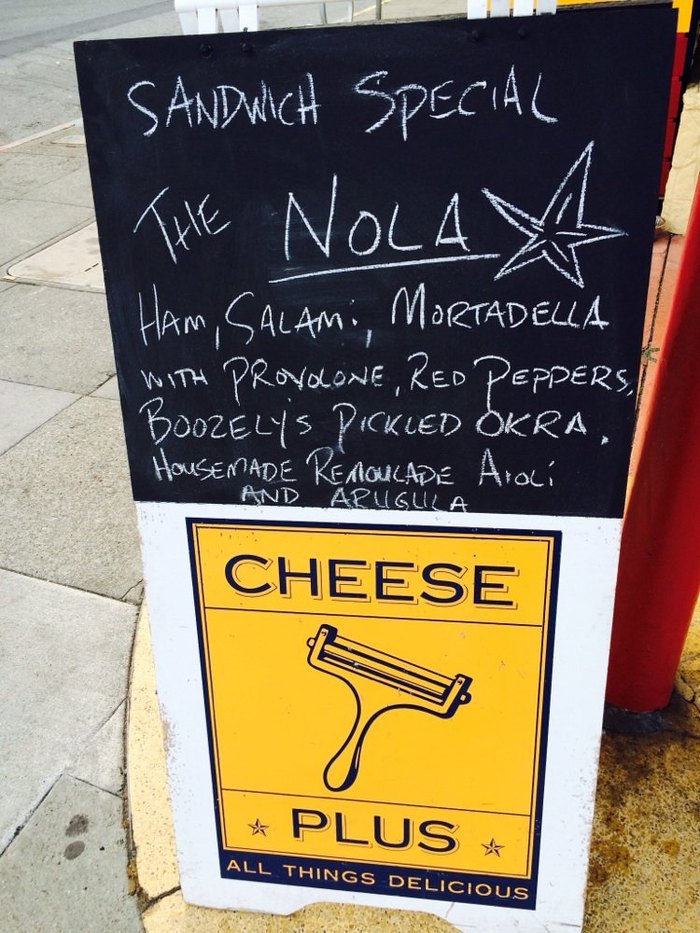 SANDWICH SPECIAL
THE NOLA
HAM, SALAMi, MORTADELLA
WITH PROVOLONE, RED PEPPERS,
BOOZELY'S PICKLED OKRA,
HOUSEMADE REMOULADE AiOLi
AND ARUGULA
CHEESE
PLUS
ALL THINGS DELICIOUS